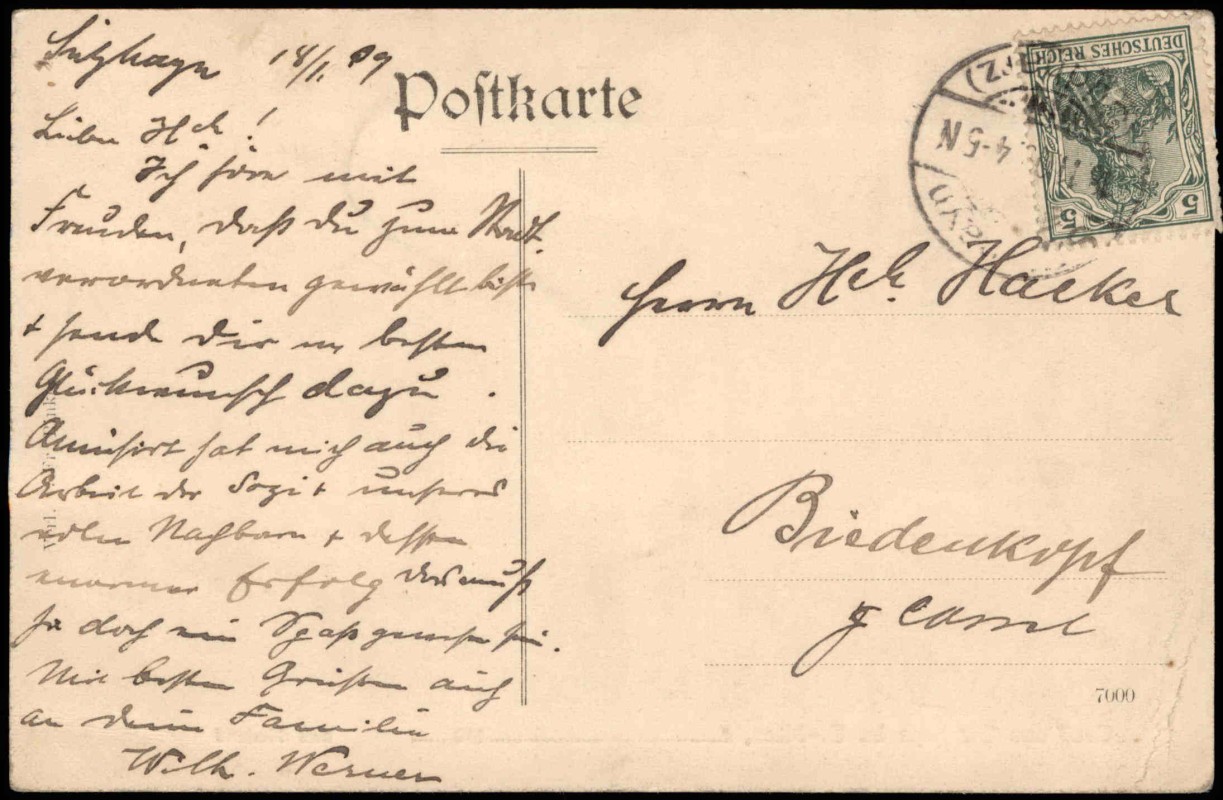 Sülzhayn 18/1. 09
Postkarte
Lieber Hch!
Ich höre mit
Freuden, daß du zum Stadt-
verordneten gewählt bist
+ sende Dir m. besten
Glückwunsch dazu.
Amüsirt hat mich auch die
Arbeit der Sozi + unseres
edlen Nachbarn + dessen
enormer Erfolg das muß
ja doch ein Spaß gewesen sein.
Mit besten Grüßen auch
an deine Familie
Wilh. Werner
DEUTSCHES REICH
5 5
4-5 N
(HARZ)
Herrn Hch. Hacker
Biedenkopf
Cassel
7000